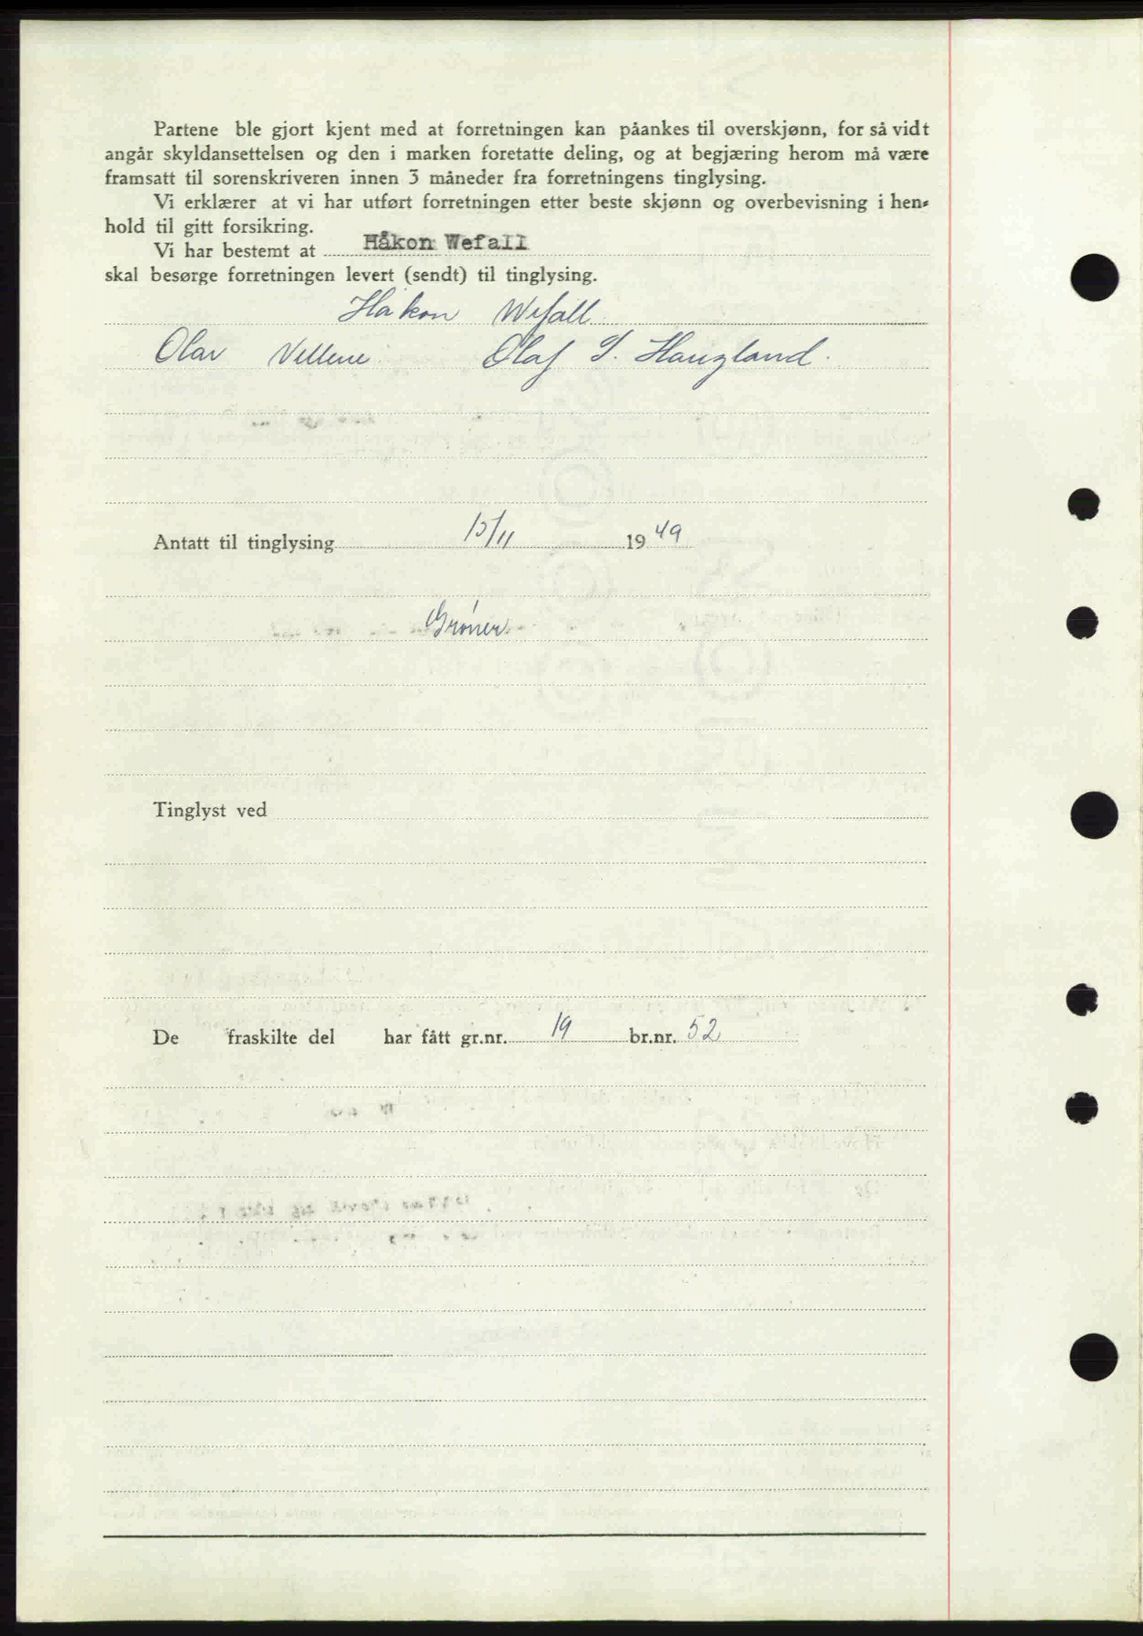 Partene ble gjort kjent med at forretningen kan påankes til overskjønn, for så vidt
angår skyldansettelsen og den i marken foretatte deling, og at begjæring herom må være
framsatt til sorenskriveren innen 3 måneder fra forretningens tinglysing.
Vi erklærer at vi har utført forretningen etter beste skjønn og overbevisning i hen-
hold til gitt forsikring.
Vi har bestemt at Håkon Wefall
skal besørge forretningen levert (sendt) til tinglysing.
Håkon Wefall
Olav Vellene Olaf S. Haugland.
Antatt til tinglysing /11 1949
Grøner
Tinglyst ved
De fraskilte del har fått gr.nr. 19 br.nr. 52